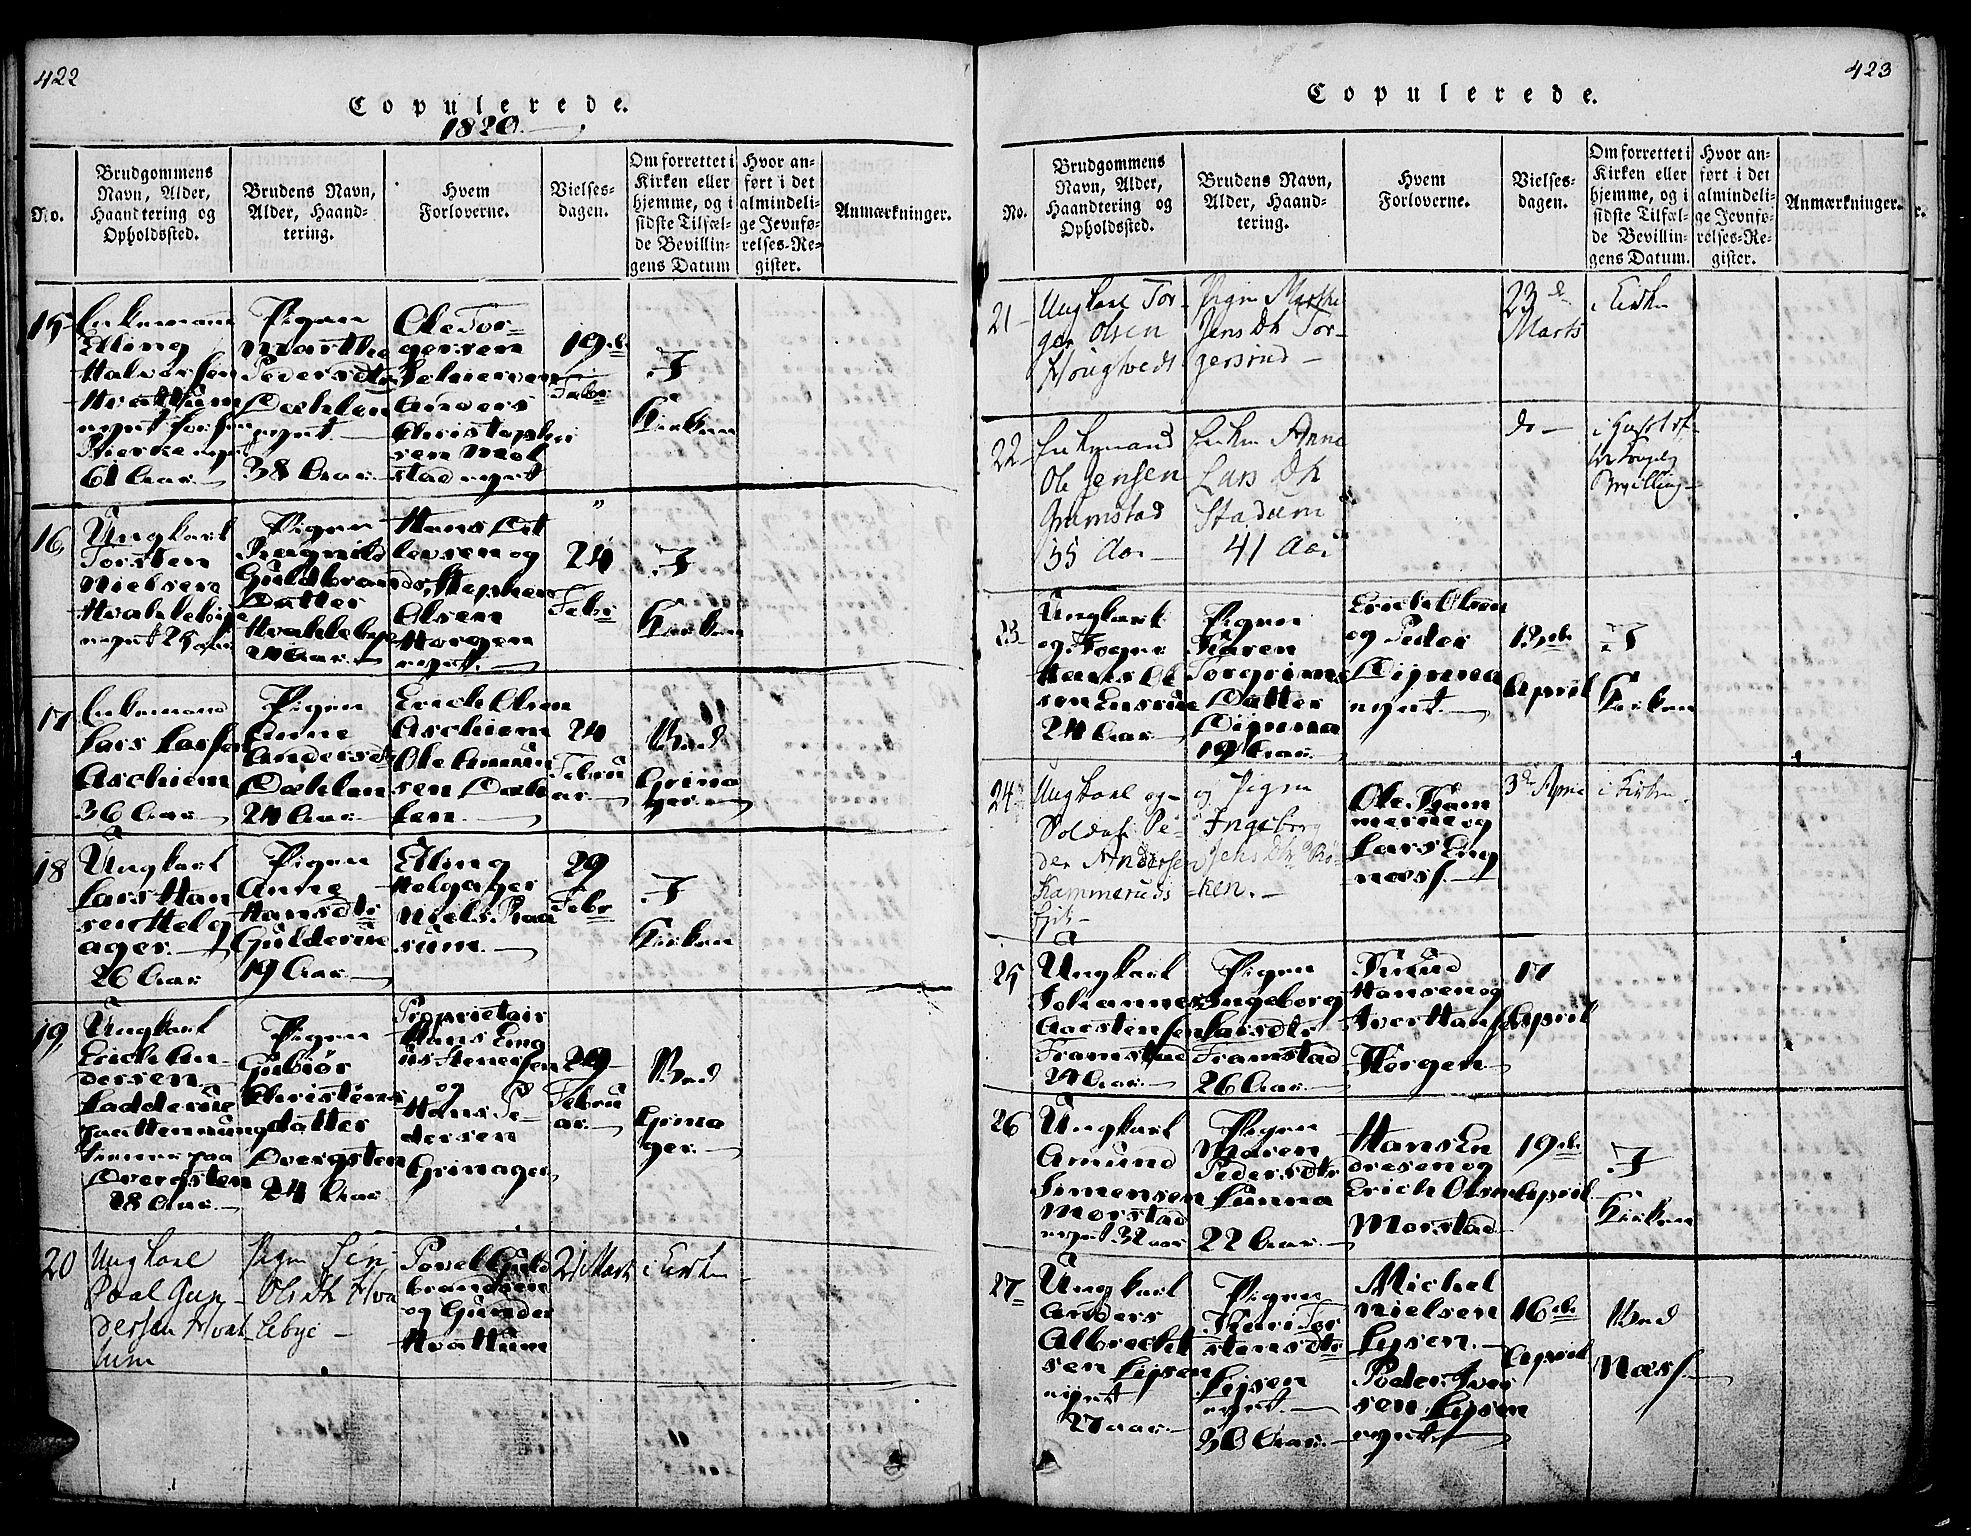 422
Copulerede.
1820.
No.
Brudgommens
Navn, Alder,
Haandtering og
Opholdssted.
Brudens Navn,
Alder, Haand-
tering.
Hvem
Forloverne.
Vielses-
dagen.
Om forrettet i
Kirken eller
hjemme, og i
sidste Tilfæl-
de Bevillin-
gens Datum
Hvor an-
ført i det
almindeli-
ge Jevnfø-
relses-Re-
gister.
Anmærkninger.
15
Enkemand
Elling
Halvorsen
Hvattum
61 Aar.
Pigen
Marthe
Pedersdtr
Dæhlen
38 Aar
Ole Tor-
gersen
Anders
Christoph
sen Mol
stad eyet
19de
Febr
I
Kirken
16,
Ungkarl
Torsten
Nielsen
eyet 25 aar
Pigen
Guldbrands
Datter
24 Aar
Hans Dit
levsen og
Stephen
Olsen
Horgen
eyet.
24
Febr
I
Kirken
17
Enkemand
Lars Larsen
Aschiem
36 Aar.
Pigen
Anne
Andersdtr
Dæhlen
24 Aar
Erich Olsen
Aschiem
Ole Amun
sen Dæh
len.
24
Febru
ar.
Ved
Grina
ger.
18
Ungkarl
Lars Han
sen Helg
ager.
26 Aar
Pigen
Anne
Hansdtr
Gulderue
19 Aar.
Elling
Helgager
Niels Raa
sum.
29
Febr
I
Kirken
19,
Ungkarl
Erich An-
dersen
Ladderue
Dvergsten
28 Aar.
Pigen
Gubiør
Christens
datter
Dvergsten
24 Aar
Proprietair
Hans Eng
us Stenersen
og
Hans Pe-
dersen
Grinager
29
Febru
ar.
Ved
Grina
ger.
20
Ungkarl
Poal Gun-
dersen Hvat
tum
Pigen
Ols Dtr Hva
lebye
Povel Guld
brandsen
og Gunder
Hvattum
21 Marts
i Kirken
423
Copulerede.
No.
Brudgommens
Navn, Alder,
Haandtering og
Opholdssted.
Brudens Navn,
Alder, Haand-
tering.
Hvem
Forloverne.
Vielses-
dagen.
Om forrettet i
Kirken eller
hjemme, og i
sidste Tilfæl-
de Bevillin-
gens Datum.
Hvor an-
ført i det
almindeli-
ge Jevnfø-
relses-Re-
gister.
Anmærkninger.
21
Ungkarl Tor-
ger Olsen
Pigen Marthe
Jens Dtr Tor-
gersrud
23de
Marts
i Kirken
22
Enkemand
Ole Jensen
Grimstad
55 Aar
Enken Anne
Lars Dtr
Stadum
41 Aar
do
23
Ungkarl
Hans Ol
sen
24 Aar
Pigen
Karen
Torgrims
Datter
Dynna
19 Aar.
Erich Olsen
og Peder
Dynna
eyet.
13de
April
I
Kirken
24
Ungkarl og
Soldat Pe-
der Andersen
Kammeruds
og Pigen
Ingeborg
Jens Dtr Rø-
ken.
Ole Kam
merud og
Lars Eng
næss.
3de April
i Kirken
25
Ungkarl
Johannes
Aarstensen
Framstad
24 Aar.
Pigen
Ingeborg
Larsdtr
Framstad
26 Aar.
Knud
Hansen og
Iver Hansen
Horgen
17
April
26
Ungkarl
Amund
Simensen
Morstad
eyet 32 aar
Pigen
Maren
Pedersdtr
Lunna
22 Aar.
Hans En
dresen og
Erich Olsen
Morstad
19de
April
I
Kirken
27
Ungkarl
Anders
Albrecht
sen Lysen
eyet
27 aar
Pigen
Kari Tor
stensdtr
Lysen
eyet.
30 Aar.
Michel
Nielsen
Lysen.
Peder Iver
sen Lysen
eyet
16de
April
Ved
Næss